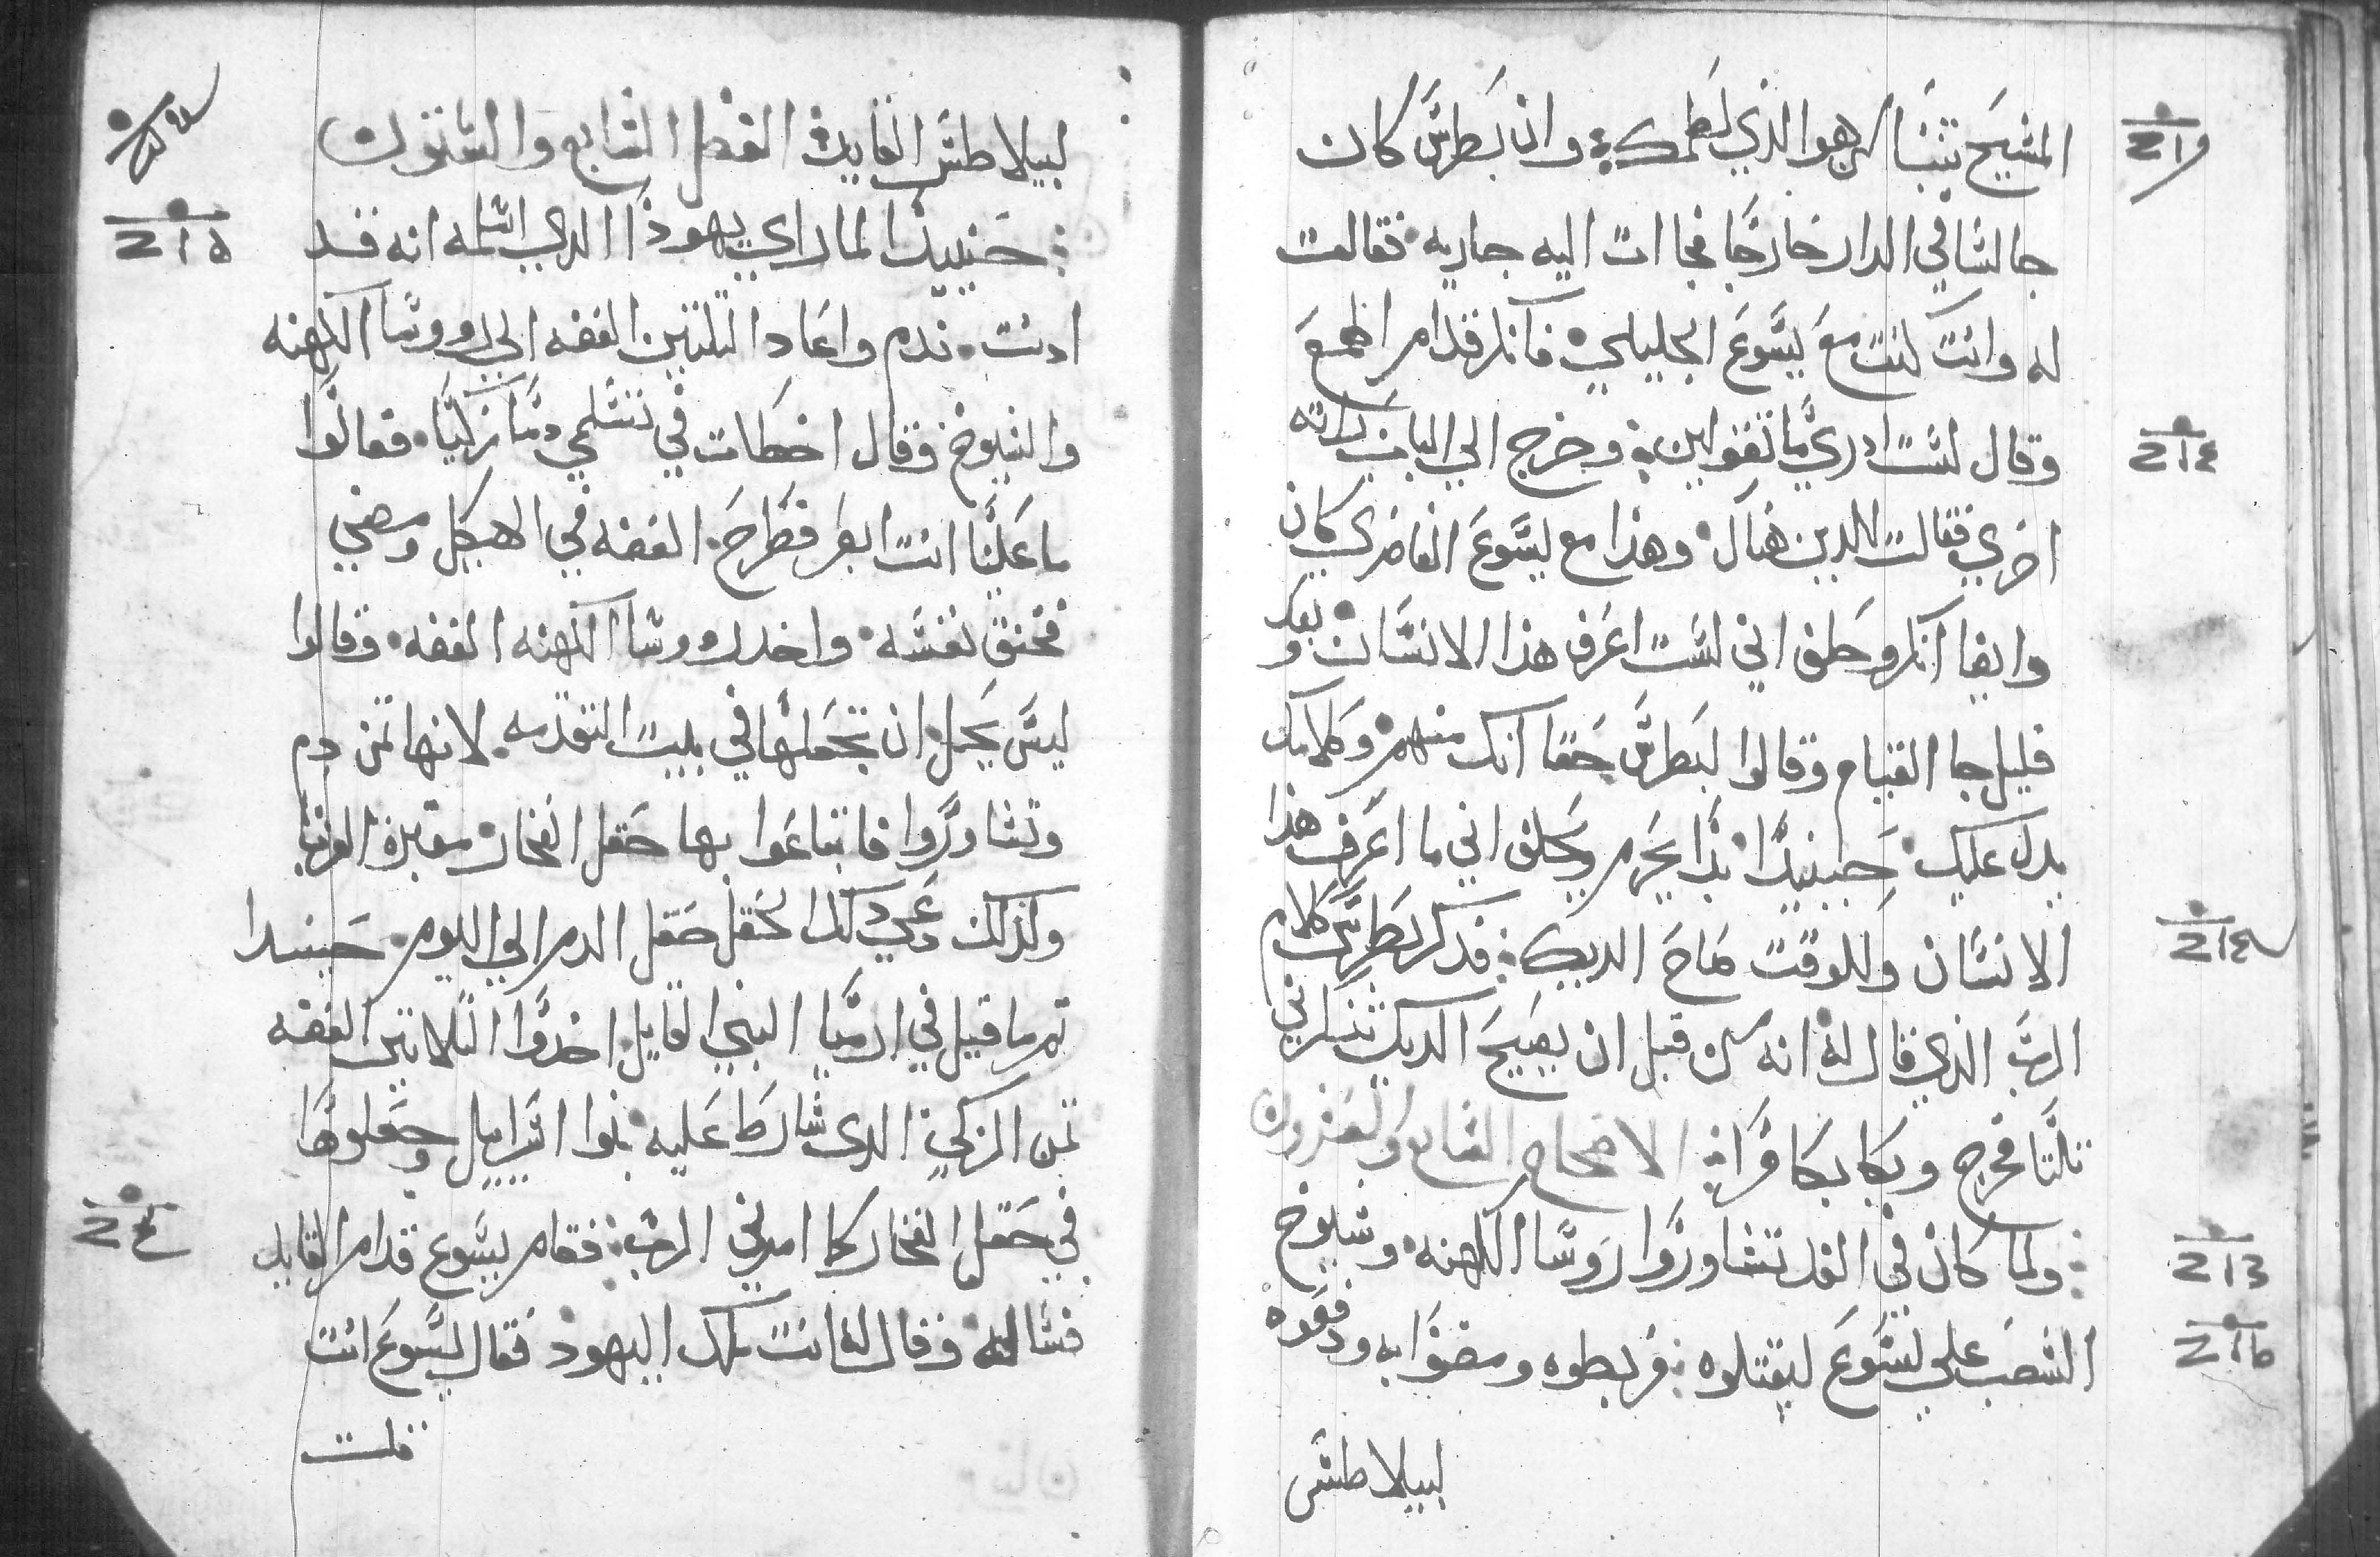 المسيح تنبا لنا من هو الذي لطمك وان بطرس كان
جالسا في الدار خارجا فجاات اليه جاريه فقالت
له وانت كنت مع يسوع الجليلي فانكر قدام الجمع
وقال لست ادري ما تقولين وخرج الي الباب راته
اخري فقالت للدين هناك وهذا مع يسوع الناصري كان
وايضا انكر وحلف اني لست اعرف هذا الانسان وبعد
قليل جا القيام وقالوا لبطرس حقا انك منهم وكلامك
يدل عليك حينيدا بدا يحرم ويحلف اني ما اعرف هذا
الانسان وللوقت صاح الديك فدكر بطرس كلام
الرب الذي قال له انه من قبل ان يصيح الديك تنكرني
تلتا فخرج وبكا بكا مرا الاصحاح السابع والعشرون
ولما كان في الغد تشاوروا روسا الكهنه وشيوخ
الشعب علي يسوع ليقتلوه فربطوه ومضوا به ودفعوه
لبيلاطس
لبيلاطس القايد الفصل السابع والستون
حينيدا لما راي يهودا الدي اسلمه انه قد
ادنت ندم واعاد التلتين الفضه الي روسا الكهنه
والشيوخ وقال اخطات في تسلمي دما زكيا فقالوا
ما علينا انت ابصر فطرح الفضه في الهيكل ومضي
فخنق نفسه واخد روسا الكهنه الفضه وقالوا
ليس يحل ان نجعلها في بيت التقدمه لانها تمن دم
وتشاوروا فابتاعوا بها حقل الفخار مقبرة الغربا
ولذلك دعي دلك الحقل حقل الدم الي اليوم حينيدا
تم ما قيل في ارميا النبي القايل اخدوا التلاتين الفضه
تمن الزكي الدى شارط عليه بنوا اسراييل وجعلوها
في حقل الفخار كما امرني الرب فقام يسوع قدام القايد
فساله وقال له انت ملك اليهود فقال يسوع انت
قلت